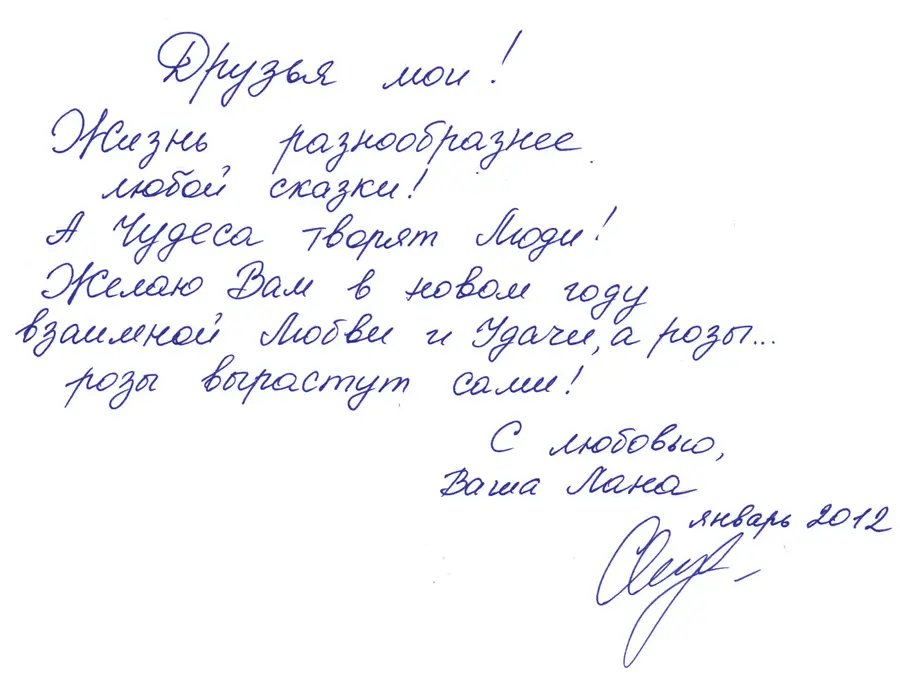 Друзья мои!
Жизнь разнообразнее
любой сказки!
А Чудеса творят Люди!
Желаю Вам в новом году
взаимной Любви и Удачи, а розы...
розы вырастут сами!
С любовью,
Ваша Лана
январь 2012